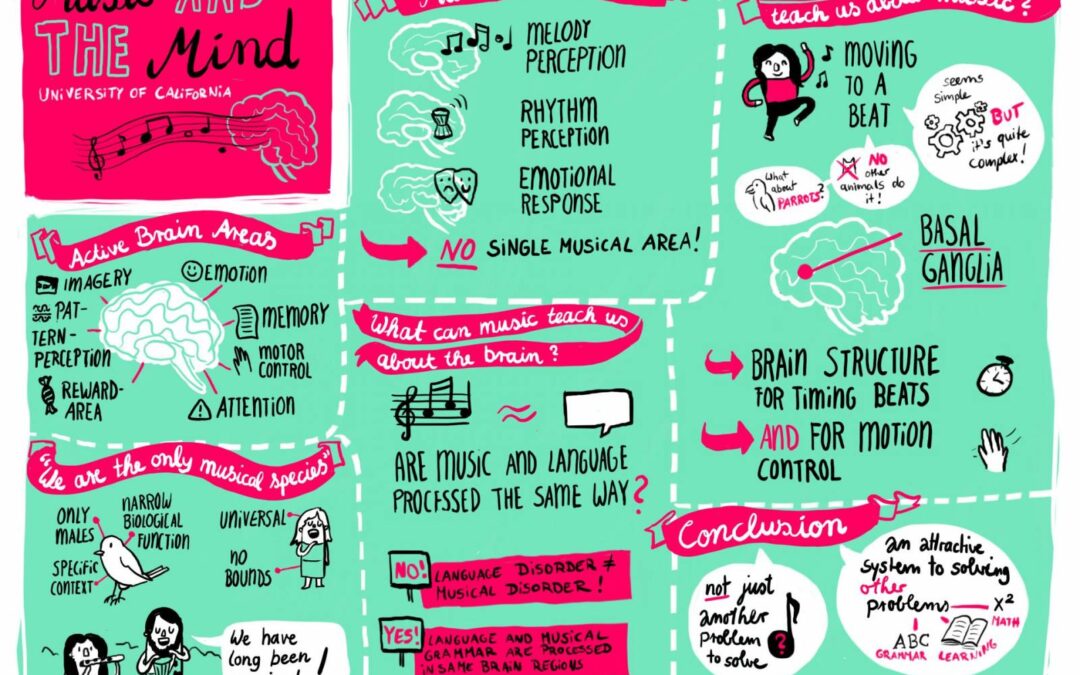 Music AND
THE Mind
UNIVERSITY OF CALIFORNIA
Active Brain Areas
IMAGERY
PAT-
TERN-
PERCEPTION
REWARD-
AREA
EMOTION
MEMORY
MOTOR
CONTROL
ATTENTION
"We are the only musical species"
ONLY
MALES
NARROW
BIOLOGICAL
FUNCTION
SPECIFIC
CONTEXT
UNIVERSAL
NO
BOUNDS
We have
long been
MELODY
PERCEPTION
RHYTHM
PERCEPTION
EMOTIONAL
RESPONSE
NO SINGLE MUSICAL AREA!
What can music teach us
about the brain?
ARE MUSIC AND LANGUAGE
PROCESSED THE SAME WAY?
NO!
LANGUAGE DISORDER ≠
MUSICAL DISORDER!
YES!
LANGUAGE AND MUSICAL
GRAMMAR ARE PROCESSED
IN SAME BRAIN REGIONS
teach us about music?
MOVING
TO A
BEAT
seems
simple
BUT
it's quite
complex!
What
about
PARROTS?
NO
other
animals do
it!
BASAL
GANGLIA
BRAIN STRUCTURE
FOR TIMING BEATS
AND FOR MOTION
CONTROL
Conclusion
not just
another
problem
to solve
?
an attractive
system to solving
other
problems
X²
MATH
ABC
GRAMMAR
LEARNING